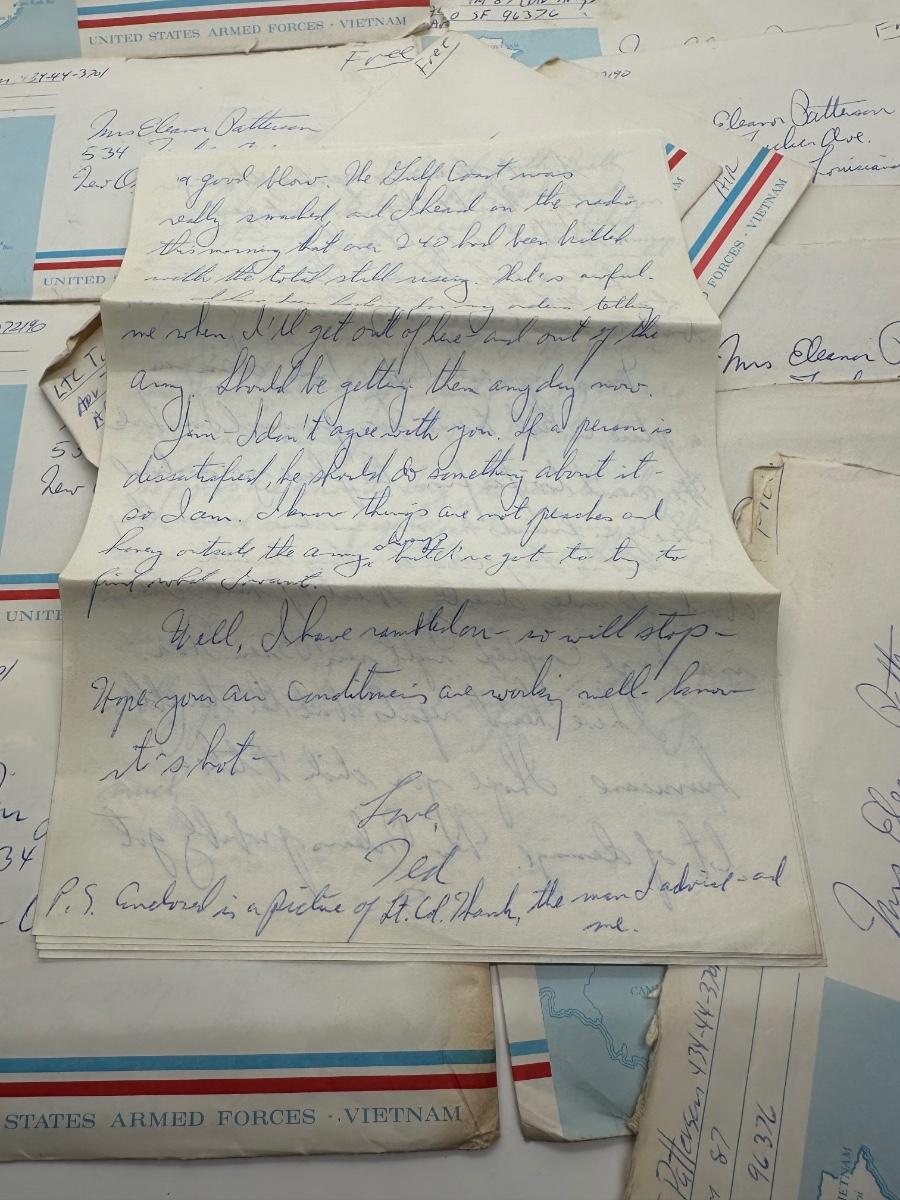 UNITED STATES ARMED FORCES - VIETNAM
SF 96376
434-44-3701
Free
Free
Mrs Eleanor Patterson
534
New O
Eleanor Patterson
Ave.
Louisiana
AIR
FORCES - VIETNAM
UNITED
a good blow. The Gulf Coast was
really smashed and I heard on the radio
this morning that over 240 had been killed
with the total still rising. That's awful.
I have been looking for my orders telling
me when I'll get out of here and out of the
Army. Should be getting them any day now.
Jim - I don't agree with you. If a person is
dissatisfied, he should do something about it -
so I am. I know things are not peaches and
honey outside the army always but I've got to try to
find what I want.
Well, I have rambled on - so will stop -
Hope your air conditioners are working well - know
it's hot -
Love,
Ted
P.S. Enclosed is a picture of Lt. Col. Thanh, the man I advise - and
me.
72190
LTC
Adv
Mrs Eleanor P
New
UNITE
34
STATES ARMED FORCES - VIETNAM
Mrs Elea
Patterson 434-44-370
87
96376
VIETNAM